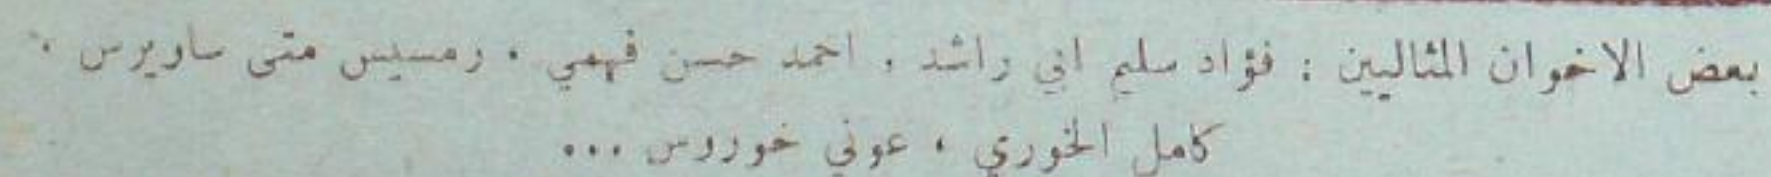 بعض الاخوان المثاليين : فؤاد سليم ابي راشد . احمد حسن فهمي . رمسيس متى ساويرس .
كامل الخوري ، عوني خوروس ...